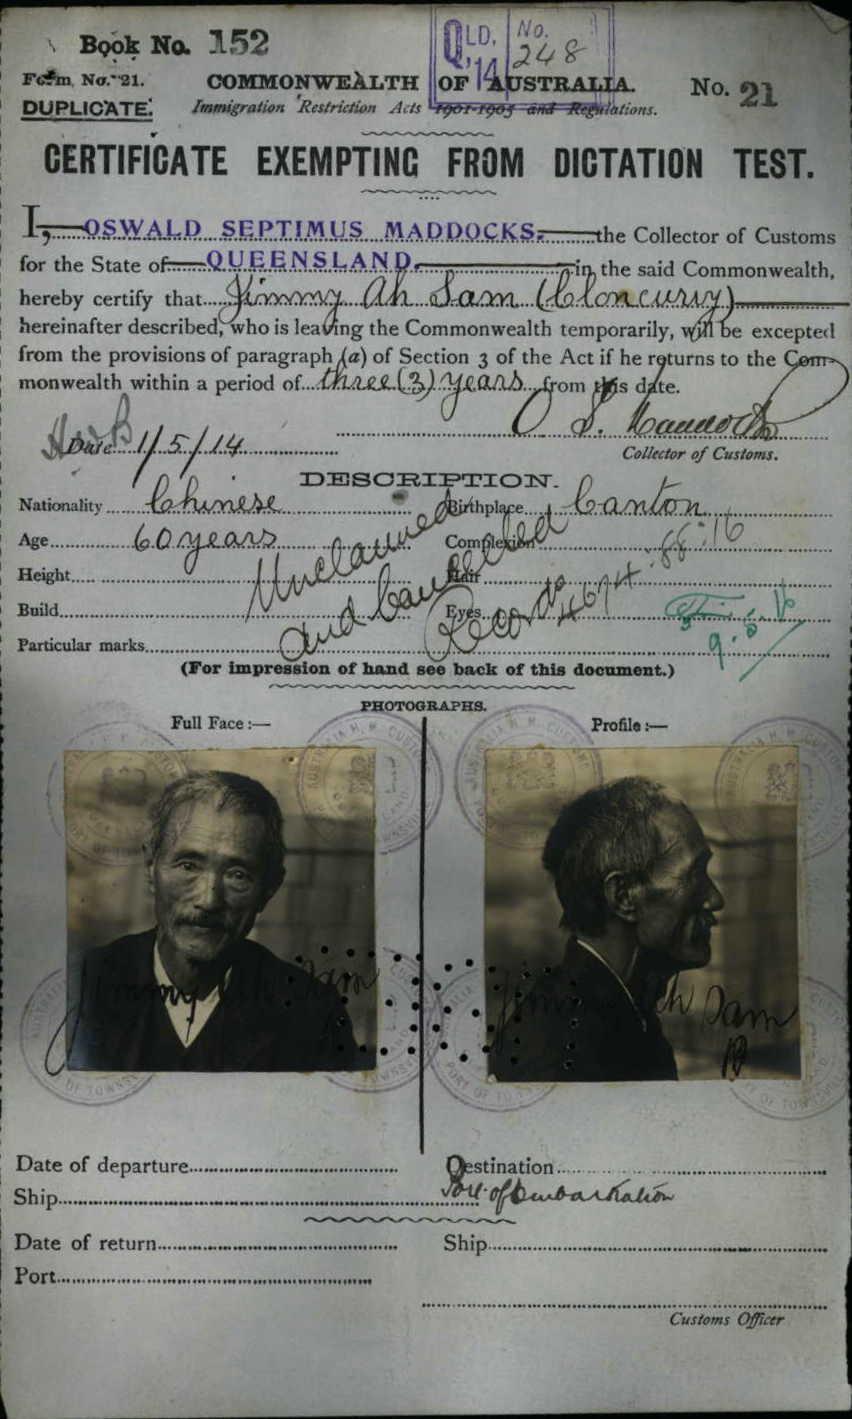 Book No. 152
QLD. No.
'14 248
Form No. 21.
COMMONWEALTH OF AUSTRALIA.
No. 21
DUPLICATE.
Immigration Restriction Acts 1901-1905 and Regulations.
CERTIFICATE EXEMPTING FROM DICTATION TEST.
I, OSWALD SEPTIMUS MADDOCKS, the Collector of Customs
for the State of QUEENSLAND, in the said Commonwealth,
hereby certify that Jimmy Ah Sam (Cloncurry)
hereinafter described, who is leaving the Commonwealth temporarily, will be excepted
from the provisions of paragraph (a) of Section 3 of the Act if he returns to the Com-
monwealth within a period of three (3) years from this date.
O. S. Maddocks
Date 1/5/14
Collector of Customs.
DESCRIPTION.
Nationality Chinese Birthplace Canton
Age 60 years Complexion
Height Hair
Build Eyes
Particular marks
Unclaimed
and Cancelled
Records 4674.88:16
9.5.16
(For impression of hand see back of this document.)
PHOTOGRAPHS.
Full Face :— Profile :—
Jimmy Ah Sam Jimmy Ah Sam
Date of departure Destination
Ship Port of Embarkation
Date of return Ship
Port
Customs Officer